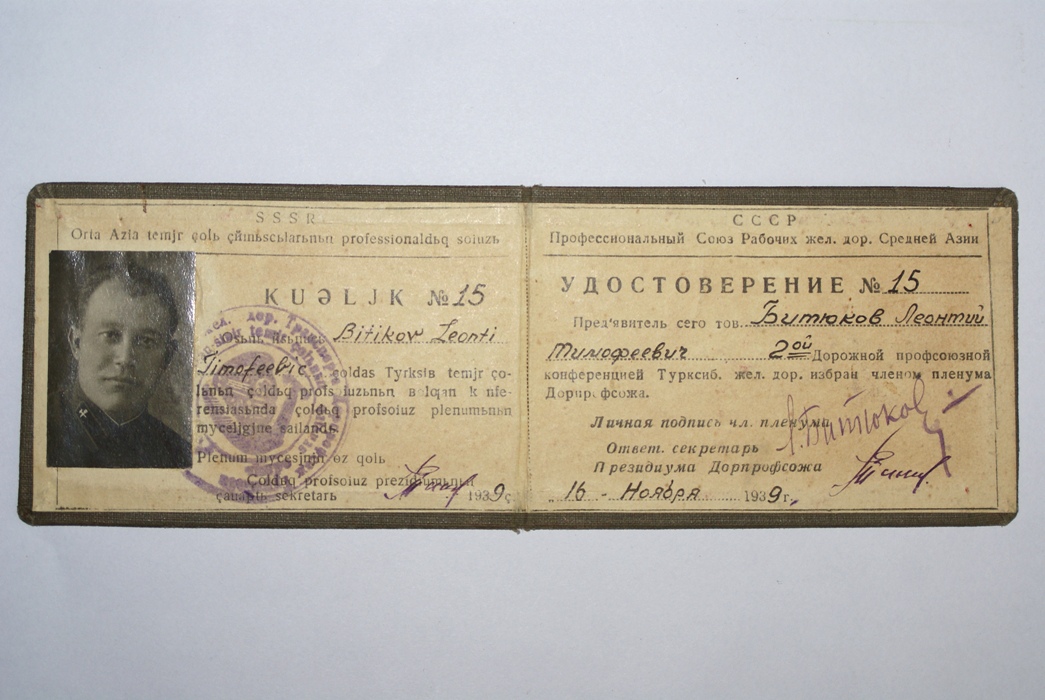 SSSR
Orta Azia temjr çolь çỹmьscьlarьnьꞑ professionaldьq soiuzь
KUƏLJK №15
Bitikov Leonti
Timofeebic çoldas Tyrksiв temjr ço-
lьnьꞑ çoldьq profs iuzьnьꞑ k nfe-
rensiasьnda çoldьq profsoiuz plenumьnьꞑ
myceljgjne sailandь
Plenum mycesjnjꞑ өz qolь
Çoldьq profsoiuz prezidiumьnьꞑ
çauaptь sekretarь 1939 ç
СССР
Профессиональный Союз Рабочих жел. дор. Средней Азии
УДОСТОВЕРЕНИЕ № 15
Пред'явитель сего тов. Битюков Леонтий
Тимофеевич 2ой Дорожной профсоюзной
конференцией Турксиб. жел. дор. избран членом пленума
Дорпрофсожа.
Личная подпись чл. пленума Л. Битюков
Ответ. секретарь
Президиума Дорпрофсожа
16 - Ноября 1939 г.